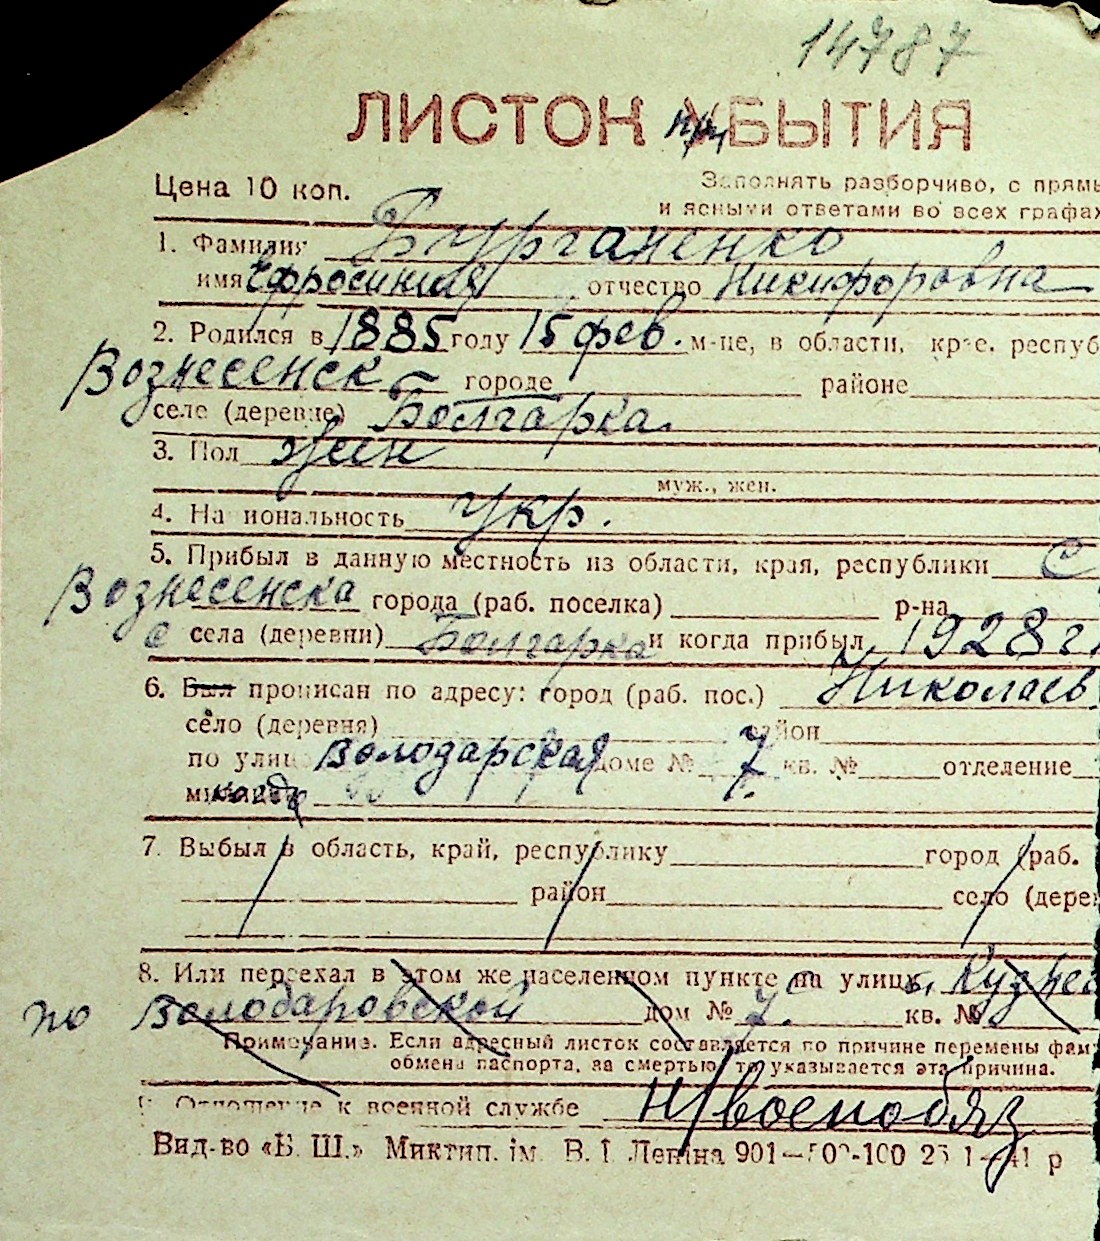 14787
ЛИСТОК при УБЫТИЯ
Цена 10 коп. Заполнять разборчиво, с прямы
и ясными ответами во всех графах
1. Фамилия Бурганенко
имя Ефросиния отчество Никифоровна
2. Родился в 1885 году 15 фев. м-це, в области, крае, респуб
Вознесенск городе районе
селе (деревне) Болгарка.
3. Пол жен
муж., жен.
4. Национальность укр.
5. Прибыл в данную местность из области, края, республики с
Вознесенска города (раб. поселка) р-на
с села (деревни) Болгарка и когда прибыл 1928 г.
6. Был прописан по адресу: город (раб. пос.) Николаев
село (деревня) район
по улице Володарская доме № 7 кв. № отделение
милиции
7. Выбыл в область, край, республику город (раб.
район село (дерев
8. Или переехал в этом же населенном пункте на улицу
по Володаровской дом № 7 кв. №
Примечание. Если адресный листок составляется по причине перемены фам
обмена паспорта, за смертью, то указывается эта причина.
9. Отношение к военной службе н/военобяз
Вид-во «Б. Ш.» Миктип. ім. В. І. Леніна 901— -100 1—41 р